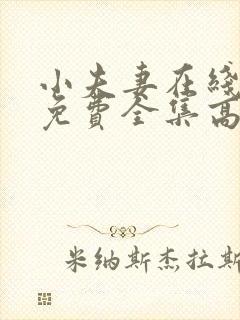 小夫妻在綫
免費全集高
米纳斯杰拉斯